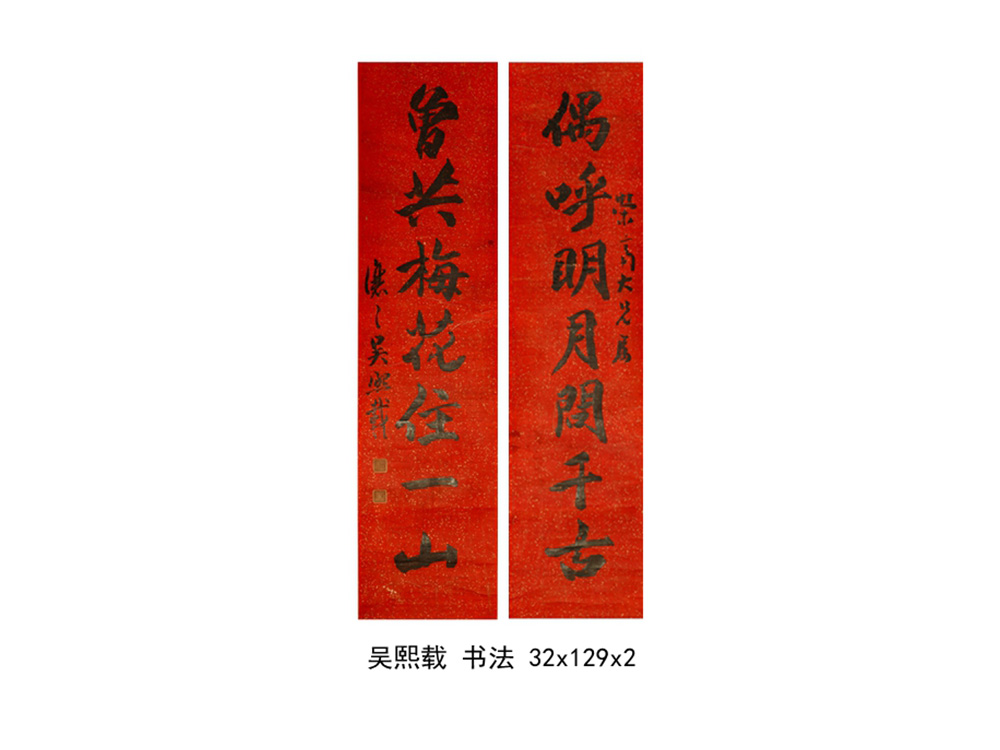 偶呼明月問千古
大兄屬
曾共梅花住一山
讓之吳熙載
吴熙载 书法 32x129x2